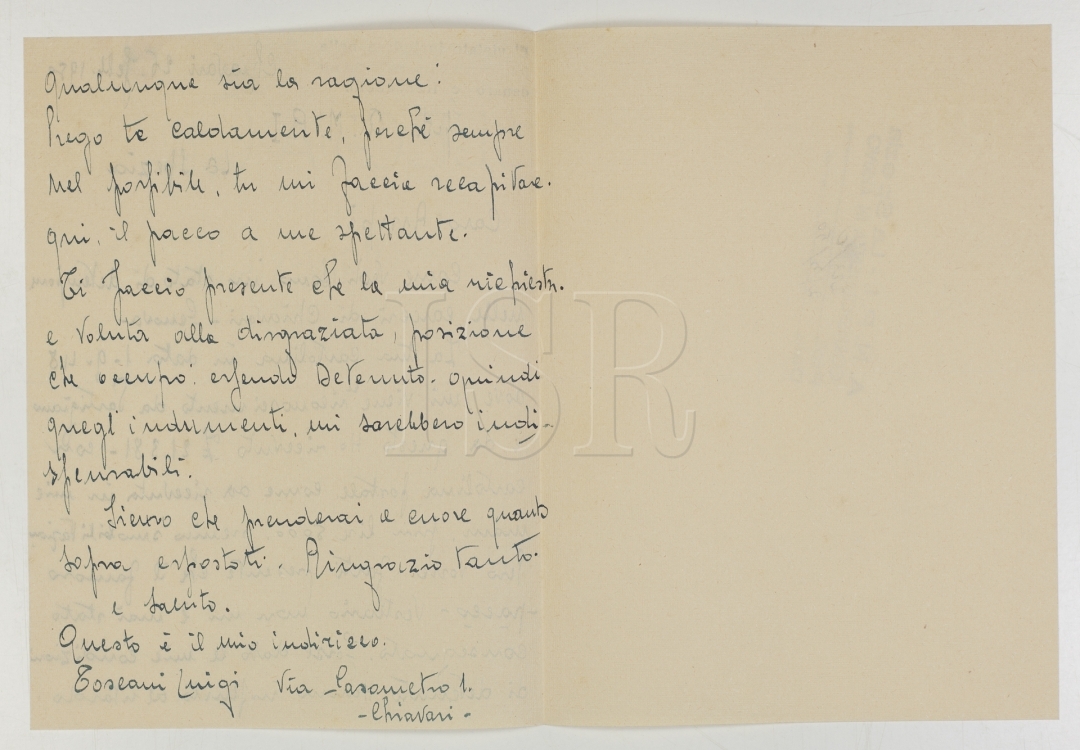 Qualunque sia la ragione!
Prego te caldamente, perché sempre
nel possibile, tu mi faccia recapitare.
qui, il pacco a me spettante.
Ti faccio presente che la mia richiesta.
e voluta alla disgraziata, posizione
che occupo: essendo Detenuto. quindi
quegl'indumenti, mi sarebbero indi-
spensabili.
Sicuro che prenderai a cuore quanto
sopra espostoti. Ringrazio tanto.
e saluto.
Questo è il mio indirizzo.
Toscani Luigi Via
- Chiavari -
ISR